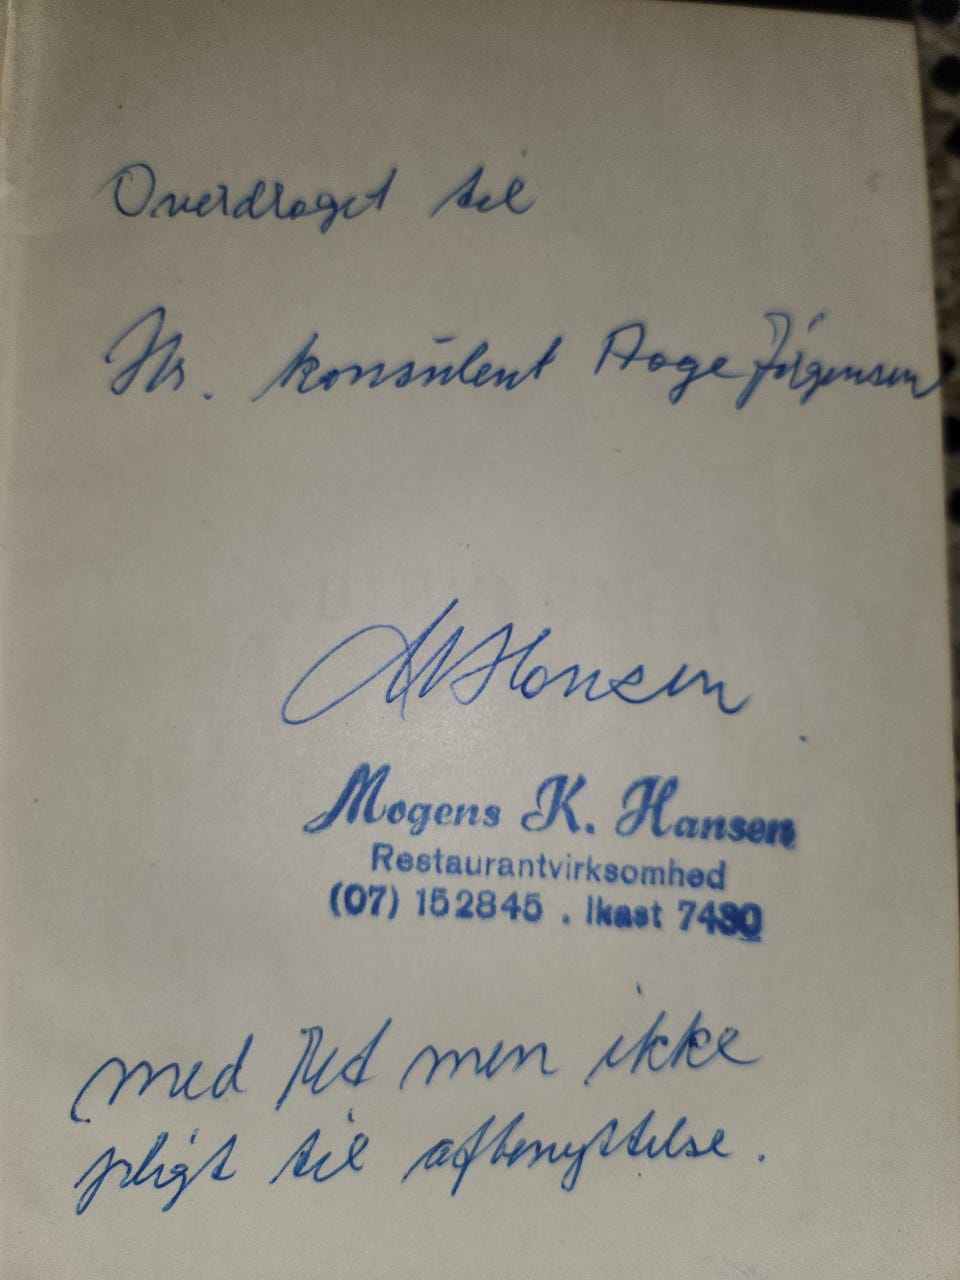 Overdraget til
Hr. konsulent Aage Jörgensen
Hansen
Mogens K. Hansen
Restaurantvirksomhed
(07) 152845 . Ikast 7430
med Ret men ikke
pligt til afbenyttelse.